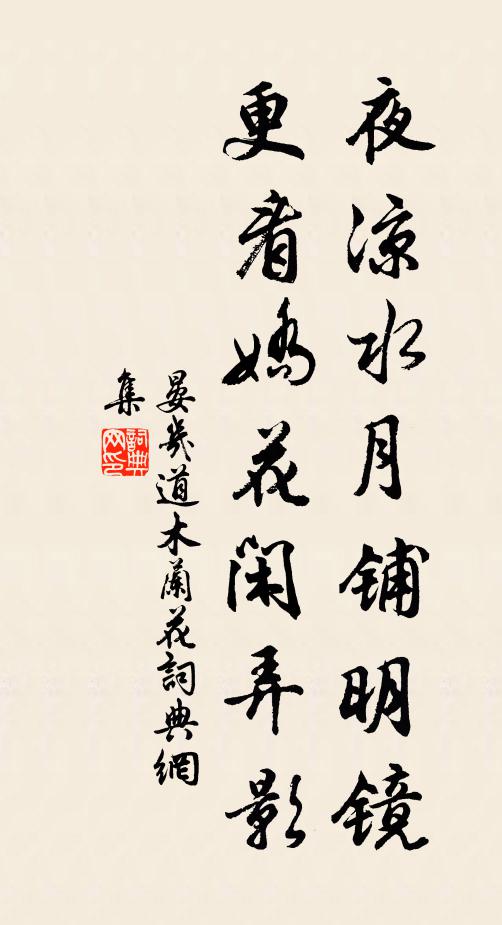 夜涼水月铺明镜
更看嬌花閑弄影
晏幾道木蘭花詞典網
集
詞典
网印